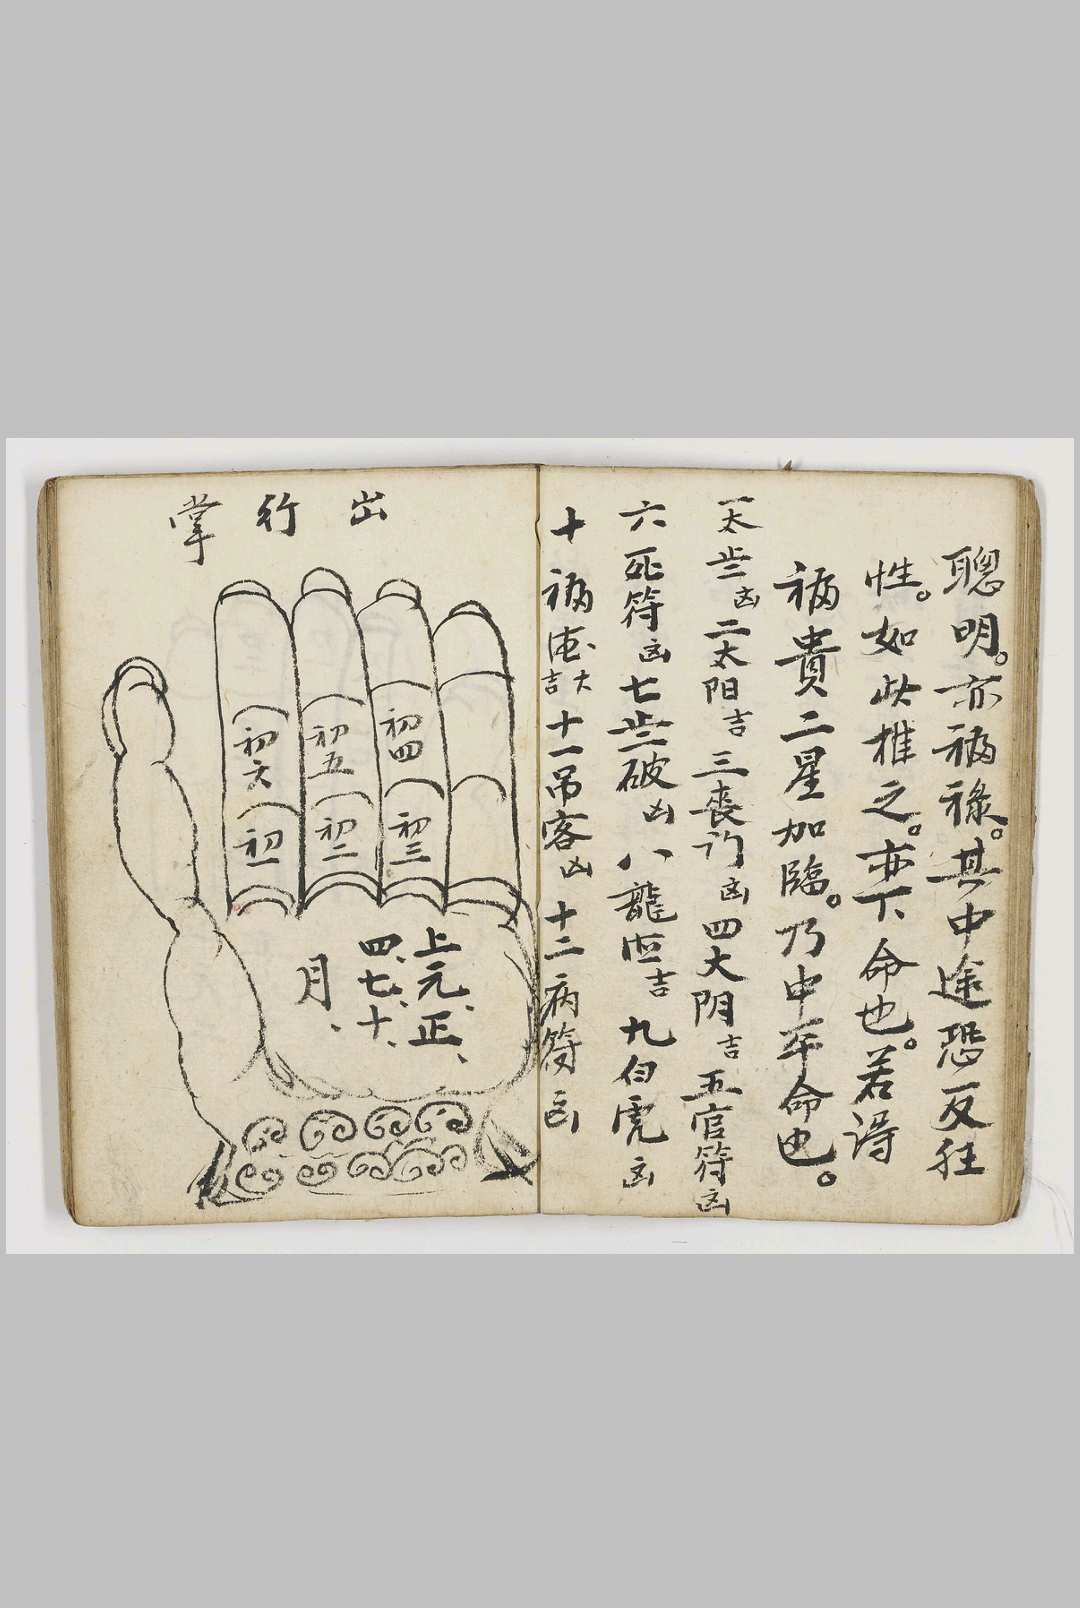 聰明。亦福祿。其中途恐反狂
性。如此推之。亦下命也。若得
福貴二星加臨。乃中平命也。
一太岁凶二太阳吉三丧门凶四太阴吉五官符凶
六死符凶七岁破凶八龍德吉九白虎凶
十福德大吉十一吊客凶十二病符凶
出行掌
初四
初三
初五
初二
初六
初一
上元、正、
四、七、十、
月、